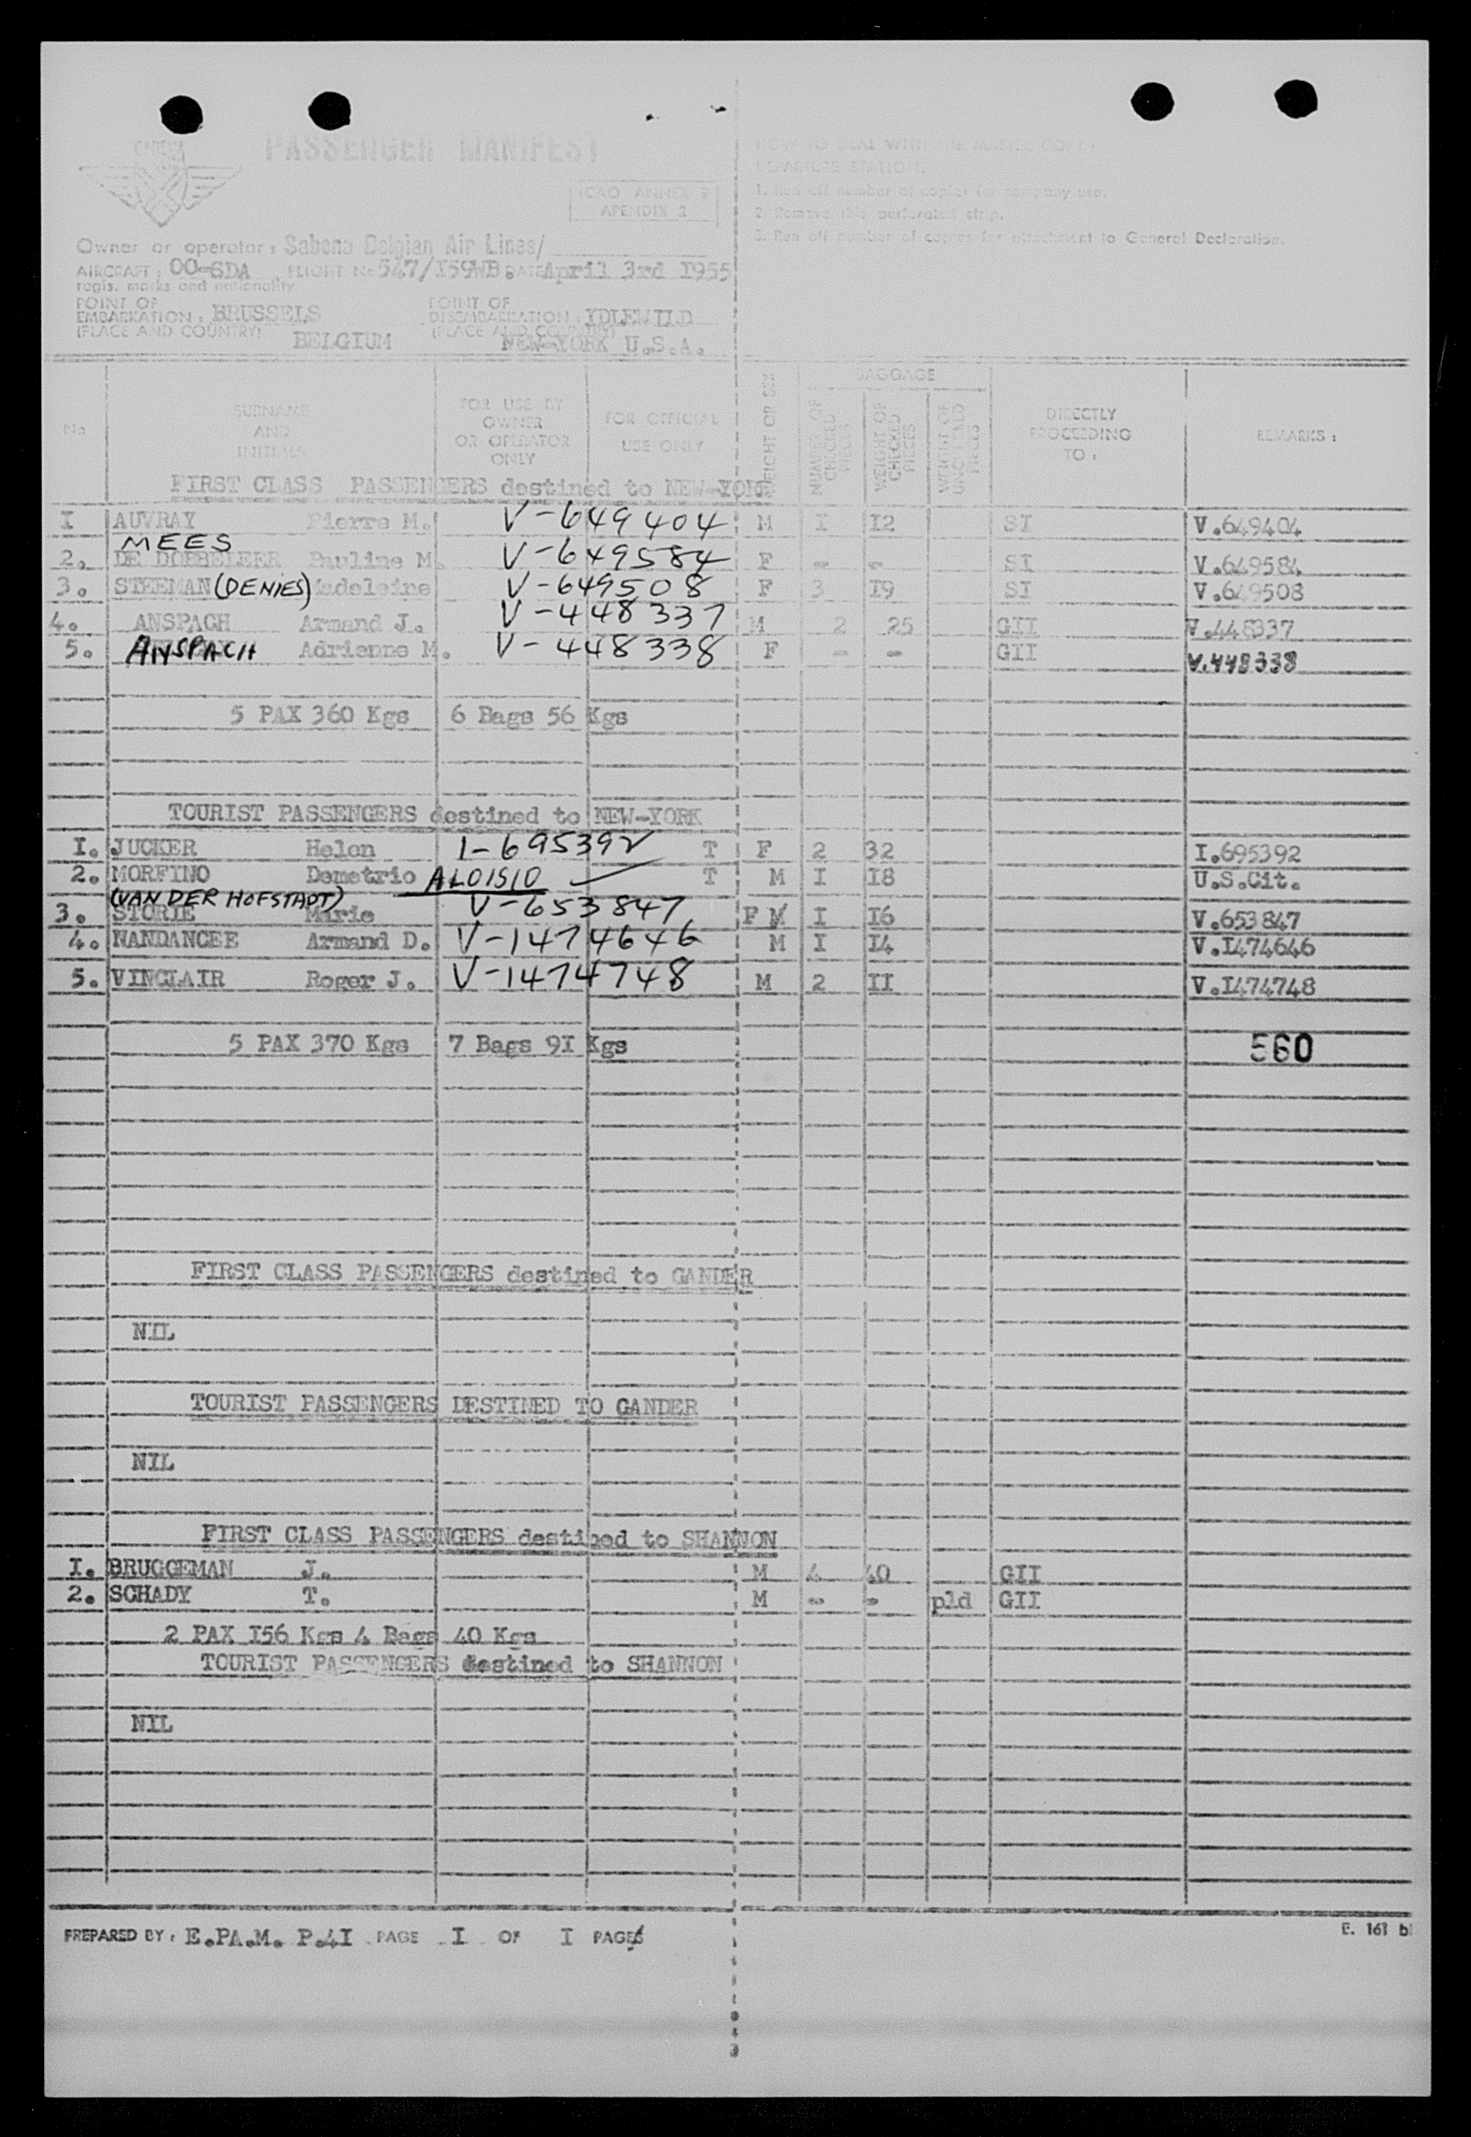 PASSENGER MANIFEST
ICAO ANNEX 9
APENDIX 2
HOW TO DEAL WITH THE MASTER COPY:
1. Run off number of copies for company use.
2. Remove this perforated strip.
3. Run off number of copies for attachment to General Declaration.
Owner or operator: Sabena Belgian Air Lines/
AIRCRAFT: OO-SDA FLIGHT No 547/I59WB. DATE April 3rd I955
regis. marks and nationality
POINT OF EMBARKATION: BRUSSELS
(PLACE AND COUNTRY) BELGIUM
POINT OF DISEMBARKATION: YDLEWILD
(PLACE AND COUNTRY) NEW-YORK U.S.A.
No
SURNAME AND INITIALS
FOR USE BY OWNER OR OPERATOR ONLY
FOR OFFICIAL USE ONLY
BAGGAGE
NUMBER OF CHECKED PIECES
WEIGHT OF CHECKED PIECES
WEIGHT OF UNCHECKED PIECES
DIRECTLY PROCEEDING TO:
REMARKS:
FIRST CLASS PASSENGERS destined to NEW-YORK
I AUVRAY Pierre M. V-649404 M I I2 SI V.649404
MEES
2. DE DOBBELEER Pauline M. V-649584 F - - SI V.649584
3. STEEMAN (DENIES) Madeleine V-649508 F 3 I9 SI V.649508
4. ANSPACH Armand J. V-448337 M 2 25 GII V.448337
5. ANSPACH Adrienne M. V-448338 F - - GII V.448338
5 PAX 360 Kgs 6 Bags 56 Kgs
TOURIST PASSENGERS destined to NEW-YORK
I. JUCKER Helen I-695392 T F 2 32 I.695392
2. MORFINO Demetrio ALOISIO T M I I8 U.S.Cit.
(VAN DER HOFSTADT)
3. STORIE Marie V-653847 F M I I6 V.653847
4. NANDANCEE Armand D. V-1474646 M I I4 V.I474646
5. VINCLAIR Roger J. V-1474748 M 2 II V.I474748
5 PAX 370 Kgs 7 Bags 9I Kgs
560
FIRST CLASS PASSENGERS destined to GANDER
NIL
TOURIST PASSENGERS DESTINED TO GANDER
NIL
FIRST CLASS PASSENGERS destined to SHANNON
I. BRUGGEMAN J. M 4 40 GII
2. SCHADY T. M - - pld GII
2 PAX I56 Kgs 4 Bags 40 Kgs
TOURIST PASSENGERS destined to SHANNON
NIL
PREPARED BY: E.PA.M. P.4I PAGE I OF I PAGES
E. 161 b